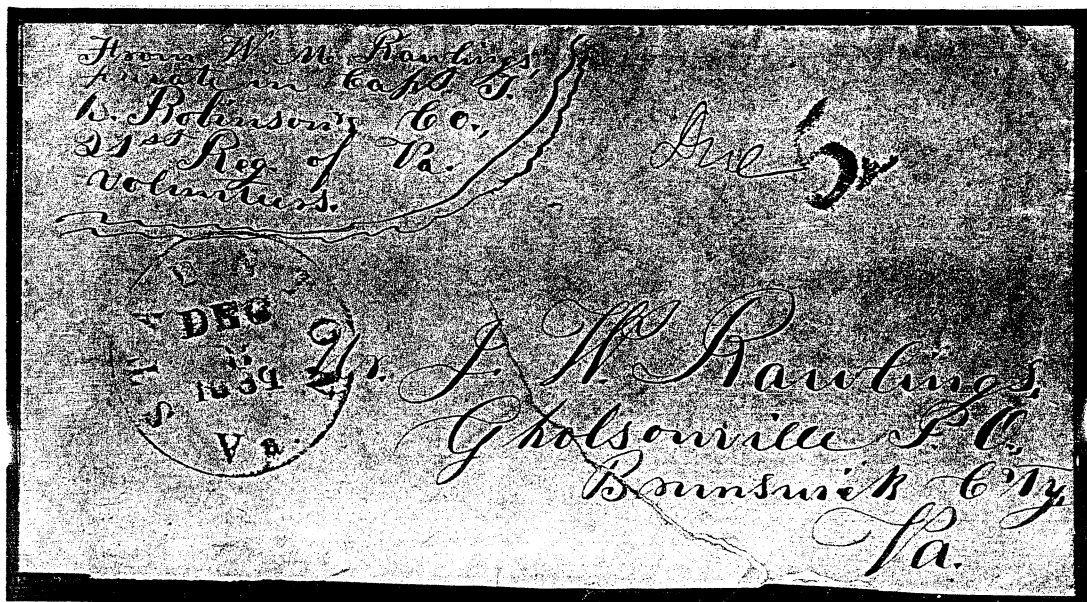 From W. M. Rawlings,
private in Capt. T.
D. Robinson's Co.,
21st Reg. of Va.
Volunturs.
Due 5
DEC
5
Va.
Mr. J. W. Rawlings,
Gholsonville P. O.
Brunswick C'ty,
Va.